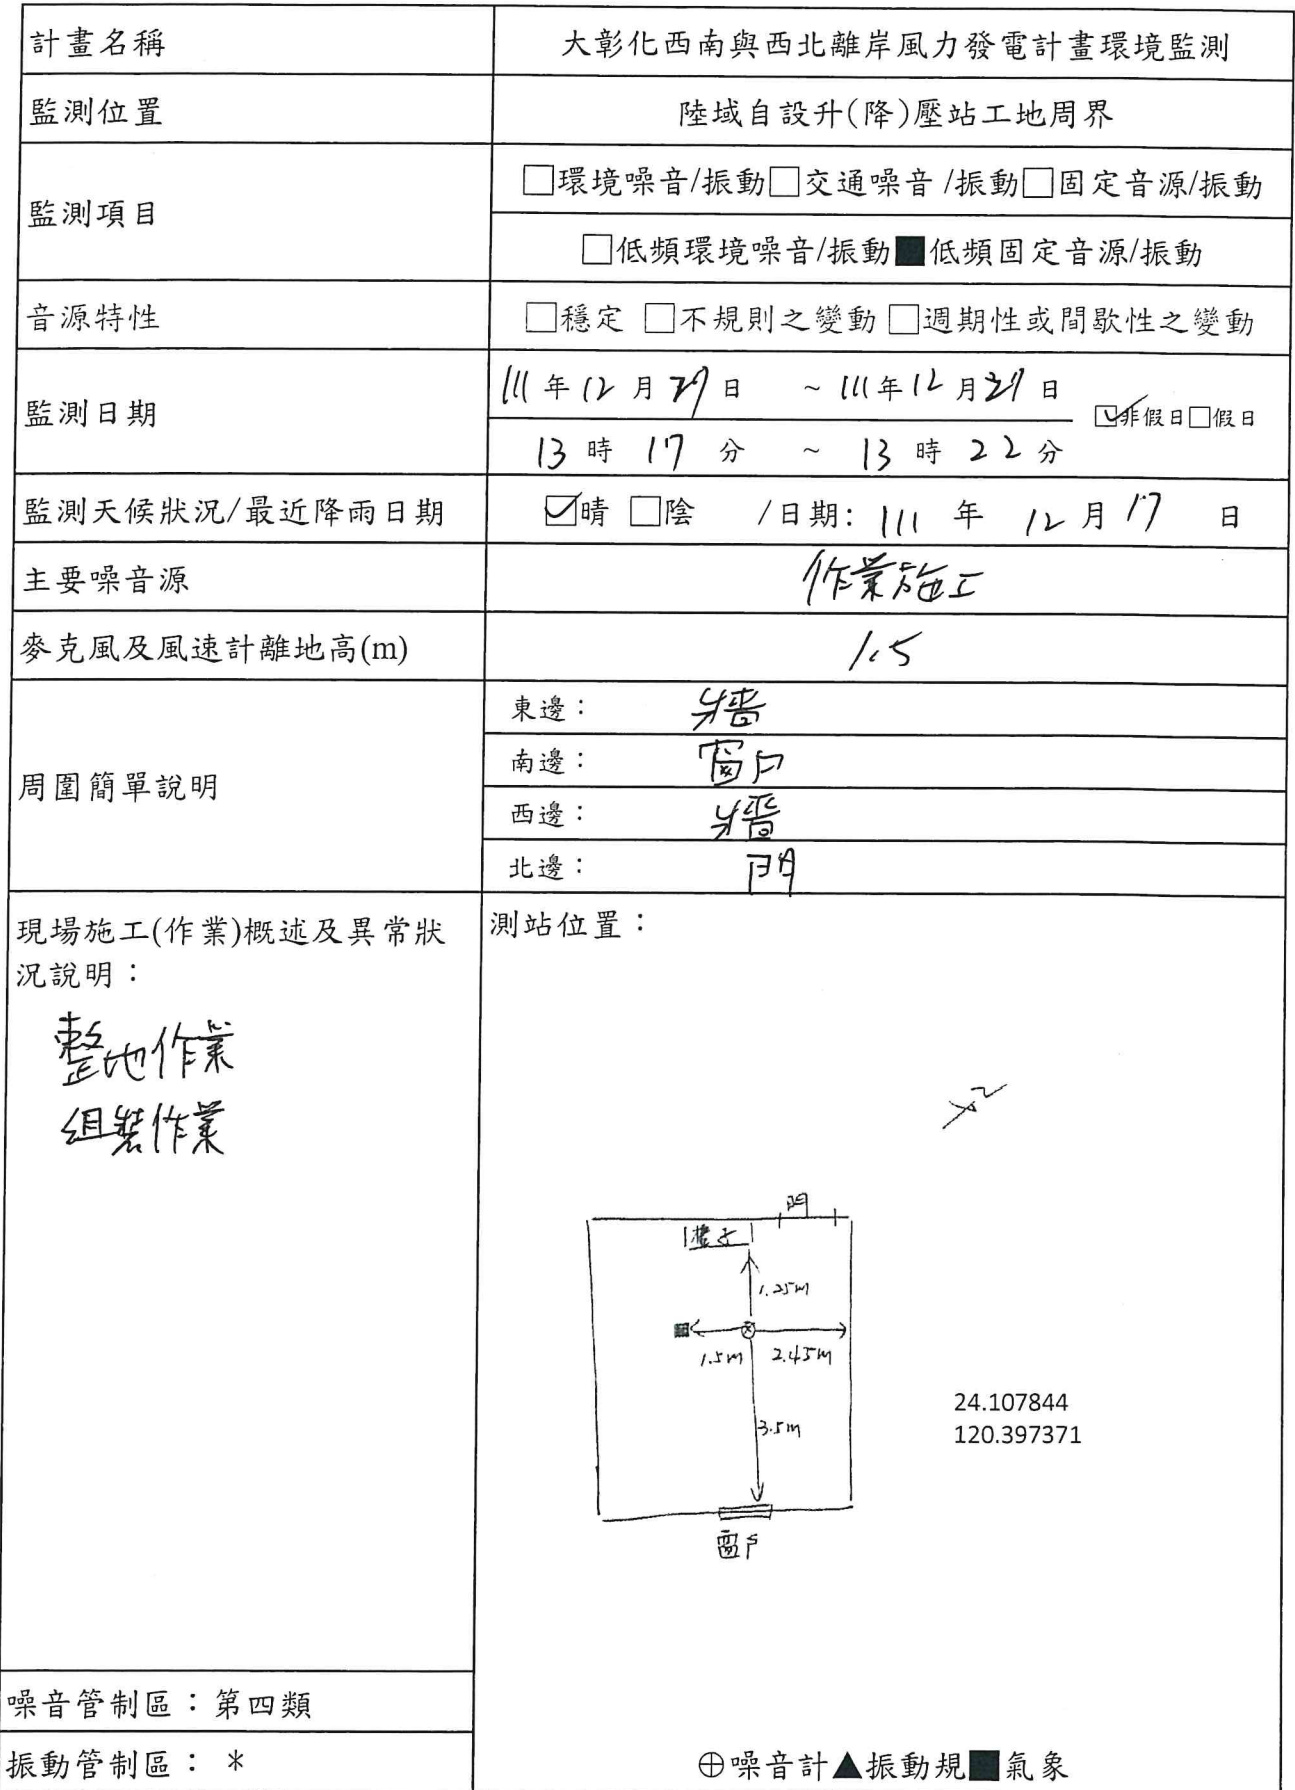 計畫名稱 大彰化西南與西北離岸風力發電計畫環境監測
監測位置 陸域自設升(降)壓站工地周界
監測項目 □環境噪音/振動□交通噪音/振動□固定音源/振動
□低頻環境噪音/振動■低頻固定音源/振動
音源特性 □穩定 □不規則之變動 □週期性或間歇性之變動
監測日期 111年12月 日 ~ 111年12月 日 ☑非假日□假日
13時17分 ~ 13時22分
監測天候狀況/最近降雨日期 ☑晴 □陰 /日期: 111年12月17日
主要噪音源 作業施工
麥克風及風速計離地高(m) 1.5
周圍簡單說明 東邊： 牆
南邊： 窗戶
西邊： 牆
北邊： 門
現場施工(作業)概述及異常狀
況說明：
整地作業
組裝作業
測站位置：
門
1.25m
1.5m 2.45m
3.5m
窗戶
24.107844
120.397371
噪音管制區：第四類
振動管制區： *
⊕噪音計▲振動規■氣象